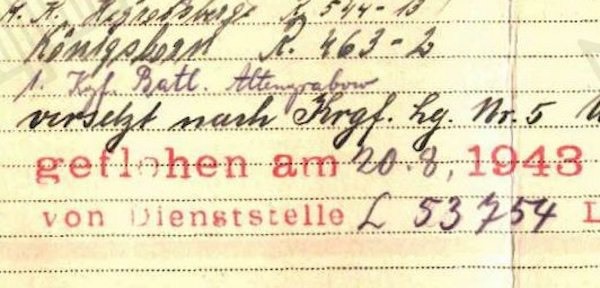 R. 544-13
Königsborn R. 463-2
1. Kgf. Batl. Altengrabow
versetzt nach Krgf. Lg. Nr. 5
geflohen am 20.8, 1943
von Dienststelle L 53754 L